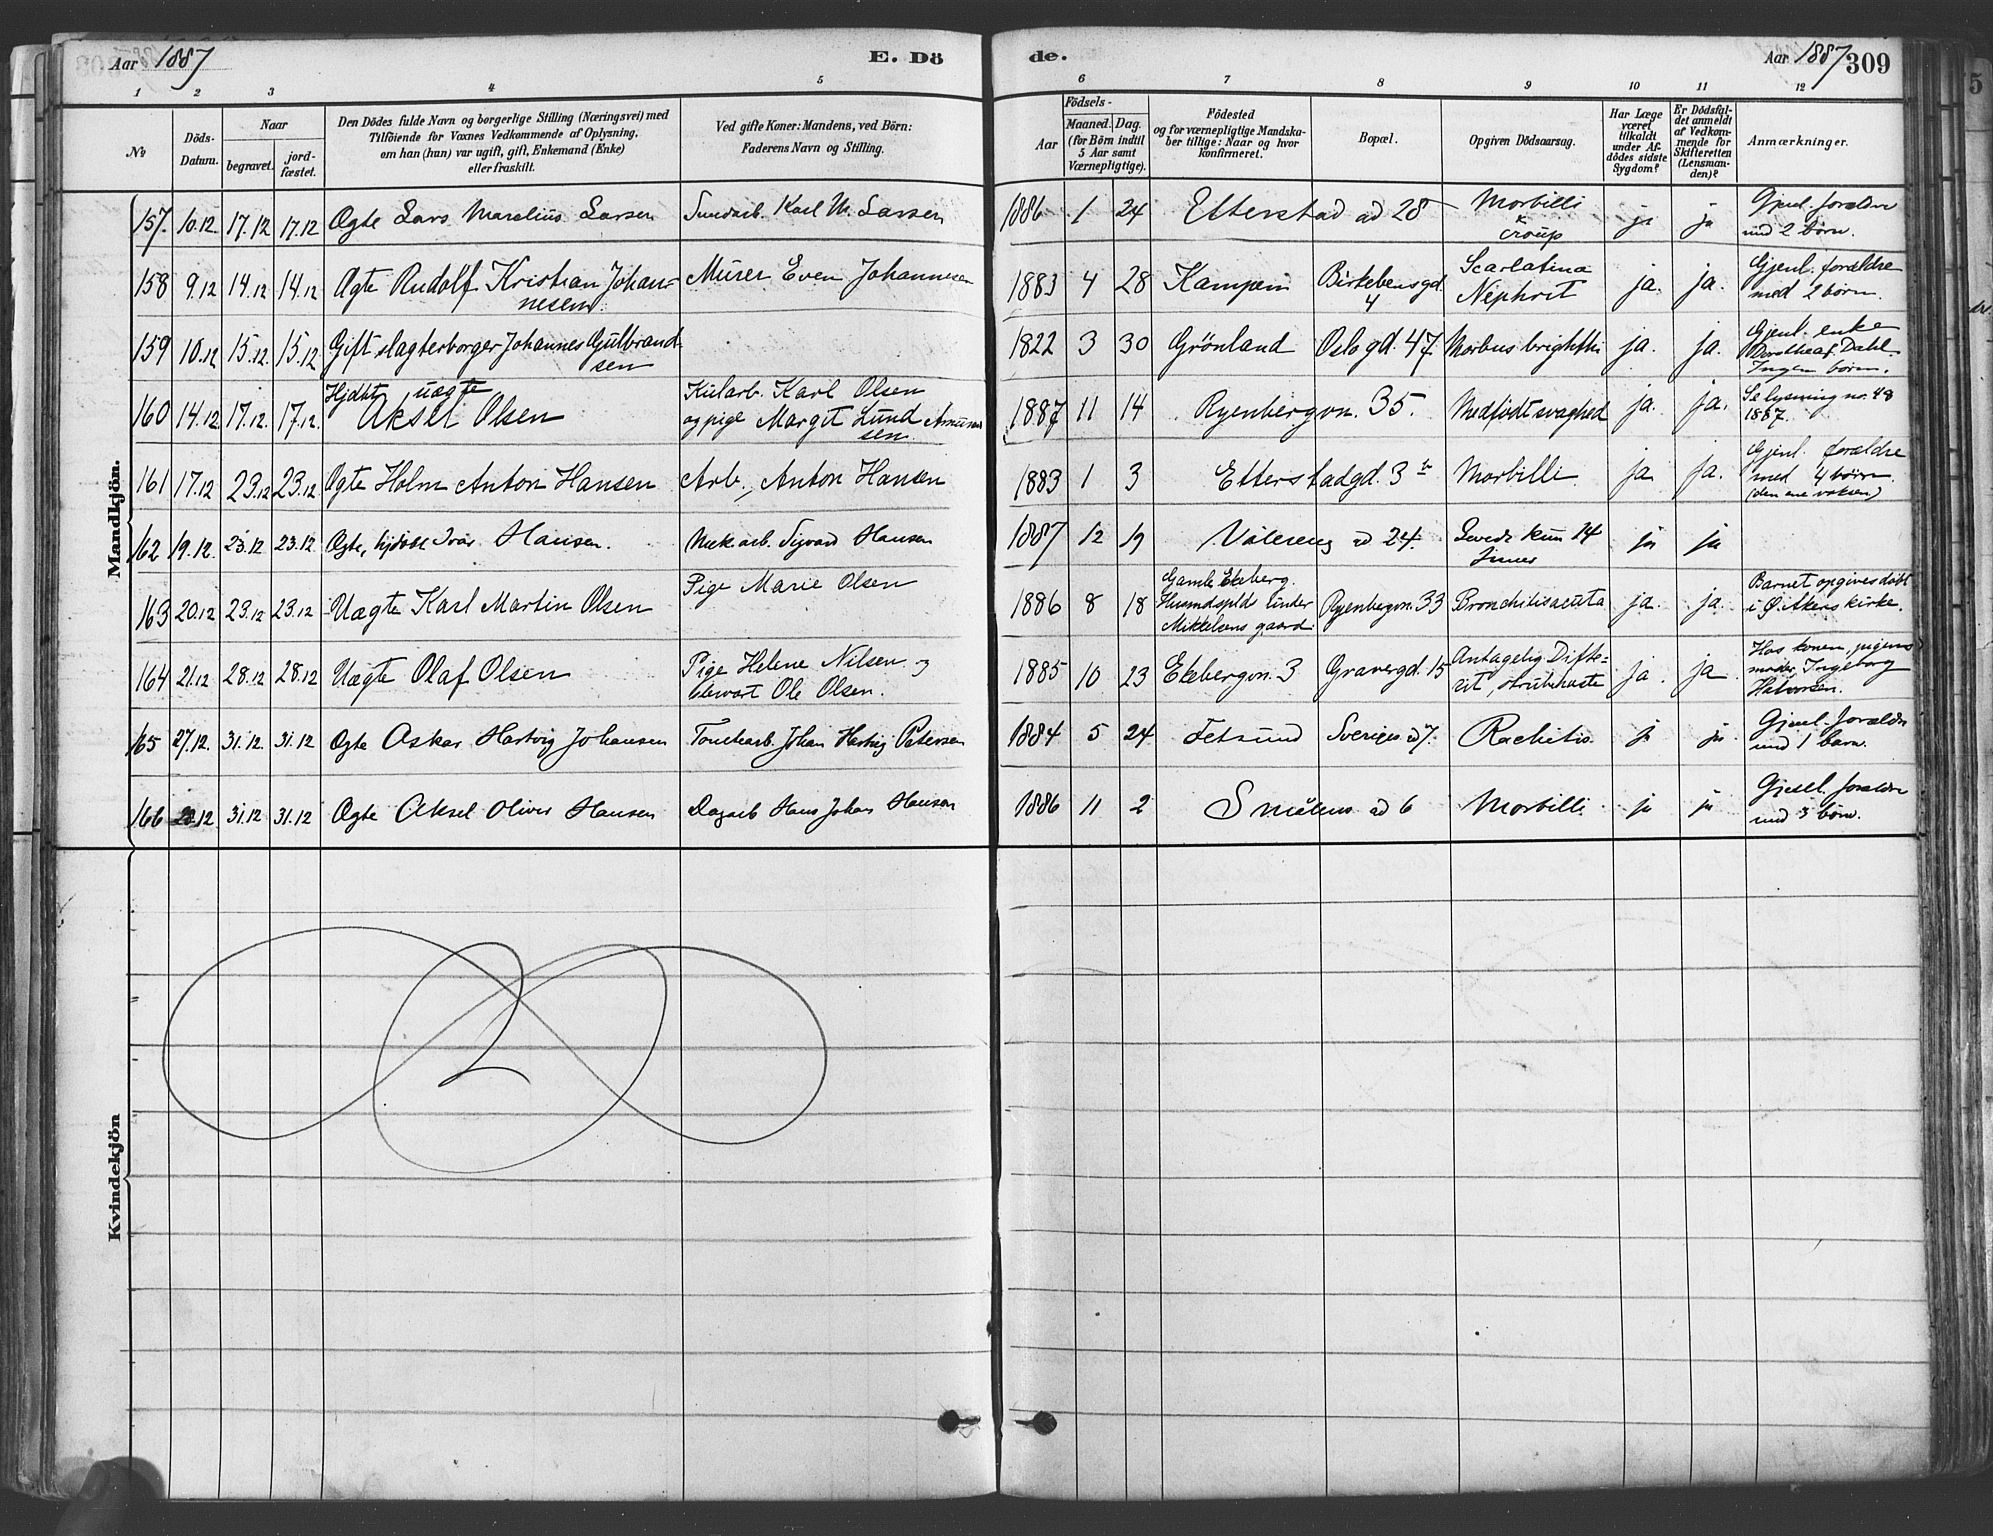 Aar 1887
E. Dö
de.
Aar 1887
309
1 2 3 4 5 6 7 8 9 10 11 12
№
Döds-
Datum.
Naar
begravet.
jord-
fæstet.
Den Dödes fulde Navn og borgerlige Stilling (Næringsvei) med
Tilföiende for Voxnes Vedkommende af Oplysning,
om han (hun) var ugift, gift, Enkemand (Enke)
eller fraskilt.
Ved gifte Koner: Mandens, ved Börn:
Faderens Navn og Stilling.
Födsels-
Aar
Maaned. Dag.
(for Börn indtil
5 Aar samt
Værnepligtige).
Födested
og for værnepligtige Mandska-
ber tillige: Naar og hvor
konfirmeret.
Bopæl.
Opgiven Dödsaarsag.
Har Læge
været
tilkaldt
under Af-
dödes sidste
Sygdom?
Er Dödsfal-
det anmeldt
af Vedkom-
mende for
Skifteretten
(Lensman-
den)?
Anmærkninger.
Mandkjön.
157. 10.12 17.12 17.12 Ægte Lars Marelius Larsen Karl M. Larsen 1886 1 24 Etterstad ad 28 Morbilli ja ja Gjenl. forældre
croup
med 2 børn.
158 9.12 14.12 14.12 Ægte Rudolf Kristian Johan= Murer Even Johannesen 1883 4 28 Kampen Birkebensgd. Scarlatina ja. ja. Gjenl. forældre
nesen. 4 Nephrit med 2 børn.
159 10.12 15.12. 15.12 Gift slagterborger Johannes Gulbrand 1822 3 30 Grönland Oslogd. 47 Morbus brighthi ja. ja. Gjenl. enke
sen Dahl.
Ingen børn.
160 14.12 17.12. 17.12. Hjdbt uægte Karl Olsen 1887 11 14 Ryenbergvn. 35. Medfödt svaghed ja. ja. Se lysning no. 48
Aksel Olsen og pige Margit Lund 1887.
sen
161 17.12 23.12 23.12. Ægte Holm Anton Hansen Arb., Anton Hansen 1883 1 3 Etterstadgd. 3 Morbilli ja ja. Gjenl. forældre
med 4 børn.
(den ene voksen)
162 19.12. 23.12 23.12 Ægte, hjdbt Ivar Hansen. Mek arb. Sigvard Hansen 1887 12 19 Vålereng ad 24. Levede kun 14 ja ja
timer
163 20.12 23.12 23.12 Uægte Karl Martin Olsen Pige Marie Olsen 1886 8 18 Gamle Ekeberg. Ryenbergvn. 33 Bronchitis acuta ja. ja. Barnet opgives døbt
Husmdspld under i Ø. Akers kirke.
Mikkelsens gaard.
164 21.12 28.12 28.12 Uægte Olaf Olsen Pige Helene Nilsen og 1885 10 23 Ekebergvn. 3 Gravergd. 15 Antagelig Difte= ja. ja Hos konen, pigens
Ole Olsen. rit, strubehoste moder, Ingeborg
Halvorsen.
165 27.12. 31.12. 31.12 Ægte Oskar Hartvig Johansen Tomtearb. Johan Hartvig Petersen 1884 5 24 Fetsund Sveriges ad 7. Rachitis. ja ja Gjenl. forældre
med 1 barn.
166 31.12 31.12 Ægte Aksel Oliver Hansen Dagarb Hans Johan Hansen 1886 11 2 Smålens ad 6 Morbilli. ja ja forældre
med 3 børn.
Kvindekjön
2